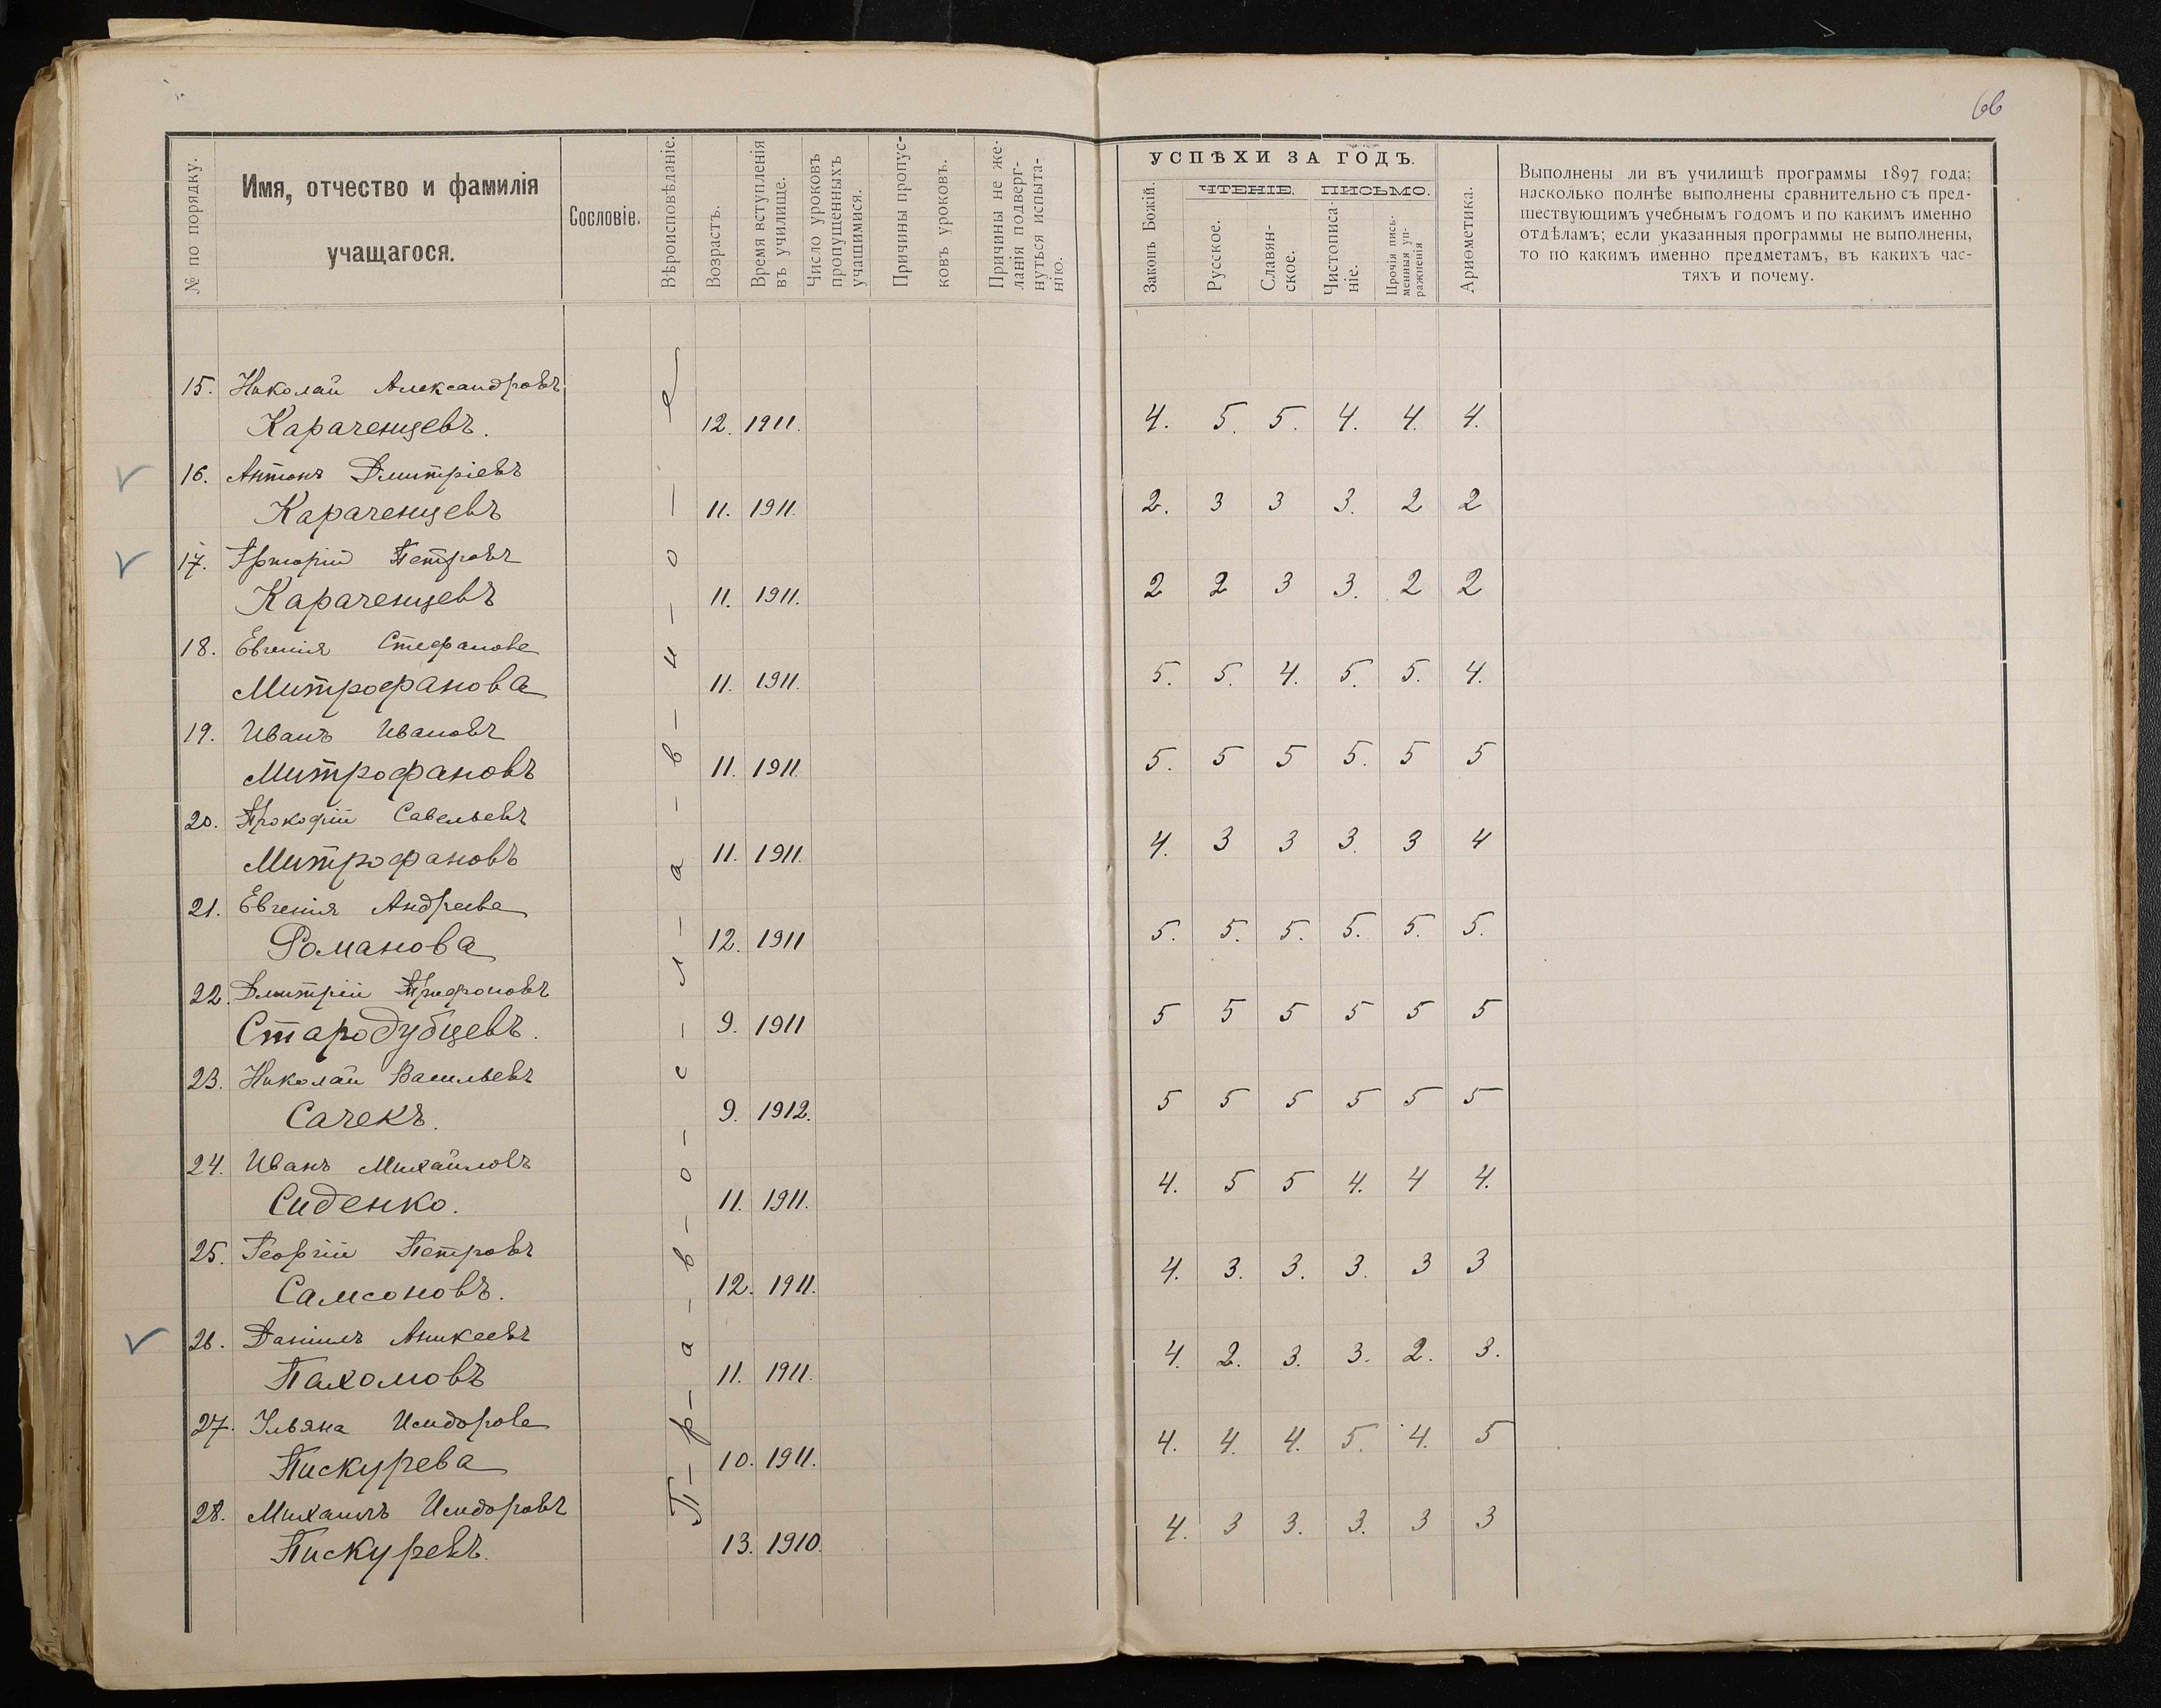 66
№ по порядку.
Имя, отчество и фамилія
учащагося.
Сословіе.
Вѣроисповѣданіе.
Возрастъ.
Время вступленія
въ училище.
Число уроковъ
пропущенныхъ
учащимися.
Причины пропус-
ковъ уроковъ.
Причины не же-
ланія подверг-
нуться испыта-
нію.
УСПѢХИ ЗА ГОДЪ.
Законъ Божій.
ЧТЕНІЕ.
Русское.
Славян-
ское.
ПИСЬМО.
Чистописа-
ніе.
Прочія пись-
менныя уп-
ражненія
Ариѳметика.
Выполнены ли въ училищѣ программы 1897 года;
насколько полнѣе выполнены сравнительно съ пред-
шествующимъ учебнымъ годомъ и по какимъ именно
отдѣламъ; если указанныя программы не выполнены,
то по какимъ именно предметамъ, въ какихъ час-
тяхъ и почему.
П-р-а-в-о-с-л-а-в-н-о-е
15. Николай Александровъ
Караченцевъ. 12. 1911. 4. 5. 5. 4. 4. 4.
16. Антонъ Дмитріевъ
Караченцевъ 11. 1911. 2. 3 3 3. 2 2
17. Петровъ
Караченцевъ 11. 1911. 2 2 3 3. 2 2
18. Евгенія Стефанова
Митрофанова 11. 1911. 5. 5. 4. 5. 5. 4.
19. Иванъ Ивановъ
Митрофановъ 11. 1911. 5. 5 5 5. 5 5
20. Прокофій Савельевъ
Митрофановъ 11. 1911. 4. 3 3 3. 3 4
21. Евгенія Андреева
Романова 12. 1911 5. 5. 5. 5. 5. 5.
22. Дмитрій Трифоновъ
Стародубцевъ. 9. 1911 5 5 5 5 5 5
23. Николай Васильевъ
Сачекъ. 9. 1912. 5 5 5 5 5 5
24. Иванъ Михайловъ
Сиденко. 11. 1911. 4. 5 5 4. 4 4.
25. Георгій Петровъ
Самсоновъ. 12. 1911. 4. 3. 3. 3. 3 3
26. Даніилъ Аникеевъ
Пахомовъ 11. 1911. 4. 2. 3. 3. 2. 3.
27. Ульяна Исидорова
Пискурева 10. 1911. 4. 4. 4. 5. 4. 5
28. Михаилъ Исидоровъ
Пискуревъ. 13. 1910. 4. 3 3. 3. 3 3